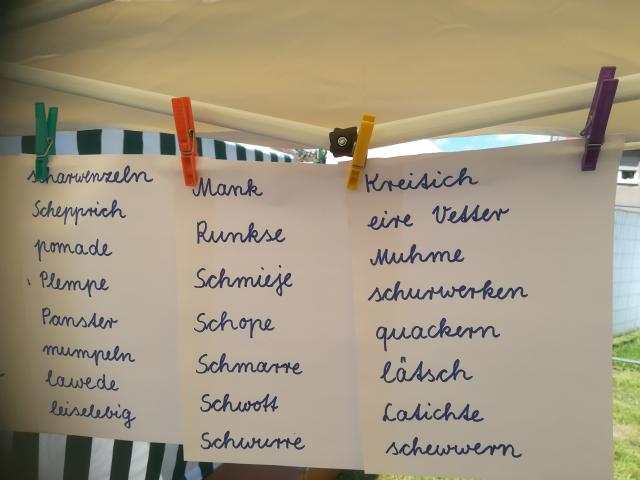 scharwenzeln
Schepprich
pomade
Plempe
Panster
mumpeln
lawede
leiselebig
Mank
Runkse
Schmieje
Schope
Schmarre
Schwott
Schwurre
Kreitich
eire Vetter
Muhme
schurwerken
quackern
lätsch
Latichte
scheuwern